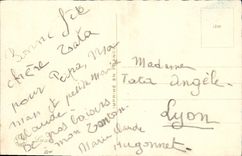 Bonne fête
chère Tata
pour Papa, Ma
man et petite
Claude.
De gros baisers
mon Tonton.
Marie Claude
Hugonnet.
Madame
Tata Angèle.
Lyon